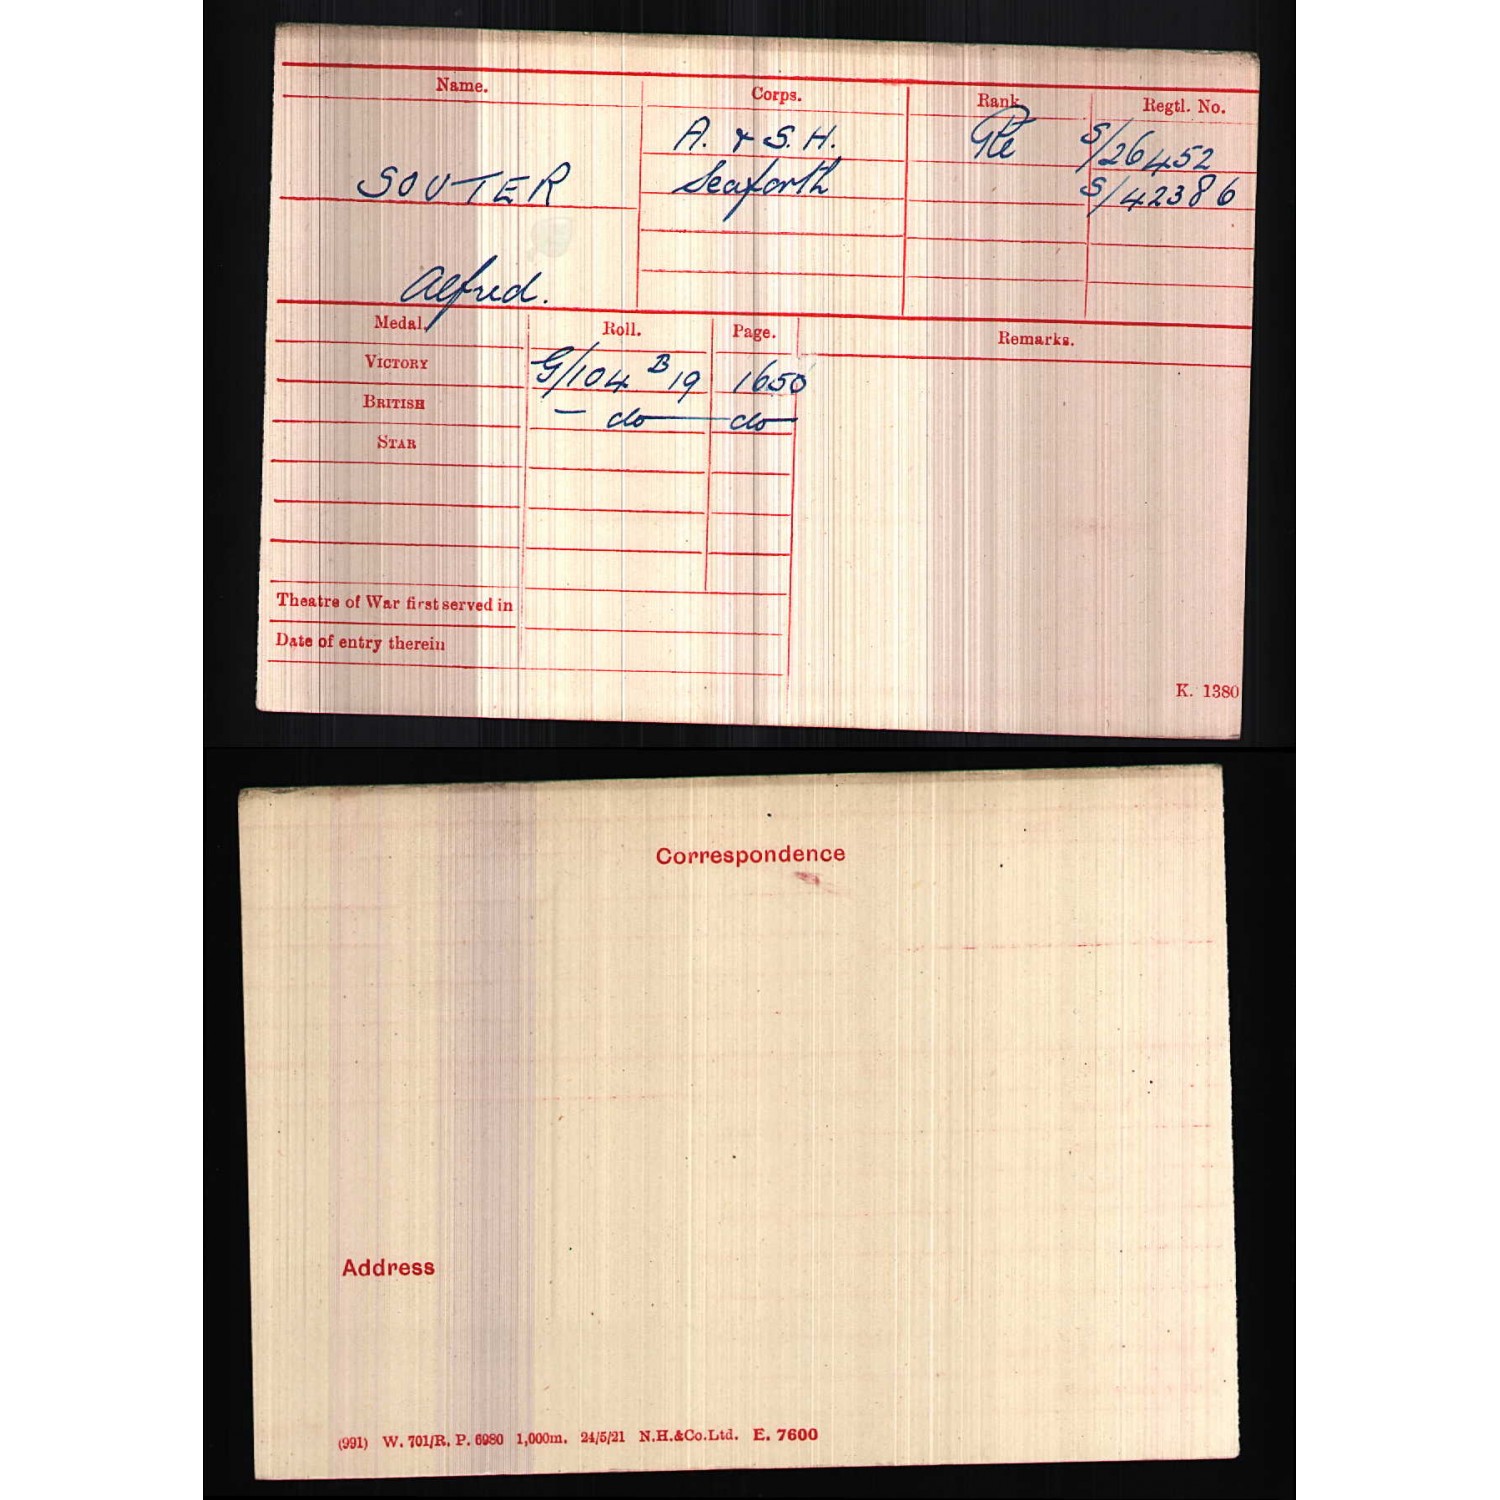 Name. Corps. Rank Regtl. No.
A. & S. H. Pte S/26452
SOUTER Seaforth S/42386
Alfred.
Medal. Roll. Page. Remarks.
VICTORY G/104 B 19 1650
BRITISH — do — do —
STAR
Theatre of War first served in
Date of entry therein
K. 1380
Correspondence
Address
(991) W. 701/R. P. 6980 1,000m. 24/5/21 N.H.&Co.Ltd. E. 7600